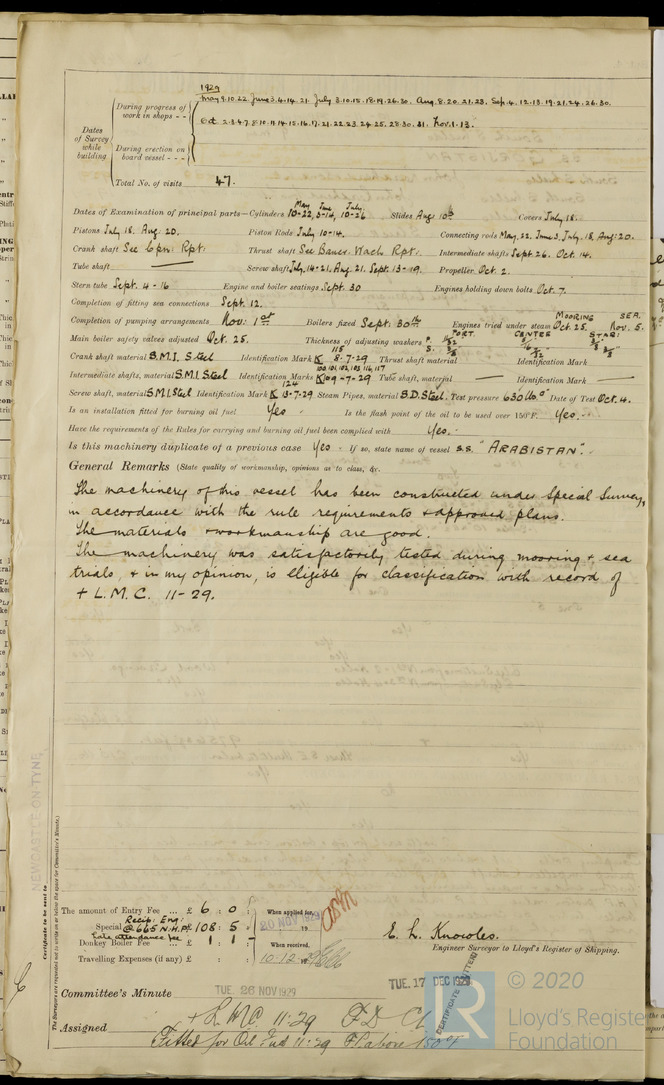 1929
During progress of work in shops - - May 9.10.22. June 3.4.14.21. July 3.10.15.18.19.26.30. Aug. 8.20.21.23. Sep. 4.12.13.19.21.24.26.30.
Oct 2.3.4.7.8.10.11.14.15.16.17.21.22.23.24.25.28.30.31. Nov. 1.13.
Dates of Survey while building
During erection on board vessel - - -
Total No. of visits 47.
Dates of Examination of principal parts—Cylinders May 10-22, June 3-14, July 10-26 Slides Aug 10th Covers July 18.
Pistons July 18. Aug. 20. Piston Rods July 10-14. Connecting rods May, 22. June 3, July, 18, Aug. 20.
Crank shaft See Cpn. Rpt. Thrust shaft See Wach Rpt. Intermediate shafts Sept 26. Oct. 14.
Tube shaft — Screw shaft July, 14-21, Aug. 21. Sept. 13-19. Propeller Oct. 2.
Stern tube Sept. 4-16 Engine and boiler seatings Sept. 30 Engines holding down bolts Oct 7.
Completion of fitting sea connections Sept. 12.
Completion of pumping arrangements Nov: 1st Boilers fixed Sept. 30th Engines tried under steam MOORING Oct. 25. SEA. Nov. 5.
Main boiler safety valves adjusted Oct. 25. Thickness of adjusting washers PORT CENTRE STAR:
Crank shaft material S.M.I. Steel Identification Mark 115 K 8-7-29 Thrust shaft material Identification Mark
Intermediate shafts, material S.M.I. Steel Identification Marks Tube shaft, material — Identification Mark —
Screw shaft, material S.M.I. Steel Identification Mark 124 K 13-7-29 Steam Pipes, material S.D. Steel. Test pressure 630 lb □" Date of Test Oct. 4.
Is an installation fitted for burning oil fuel Yes Is the flash point of the oil to be used over 150°F. Yes.
Have the requirements of the Rules for carrying and burning oil fuel been complied with Yes.
Is this machinery duplicate of a previous case Yes If so, state name of vessel S.S. "ARABISTAN".
General Remarks (State quality of workmanship, opinions as to class, &c.
The machinery of this vessel has been constructed under Special Survey,
in accordance with the rule requirements + approved plans.
The materials + workmanship are good.
The machinery was satisfactorily tested during mooring + sea
trials, + in my opinion, is eligible for classification with record of
+ L.M.C. 11-29.
NEWCASTLE-ON-TYNE
Certificate to be sent to
(The Surveyors are requested not to write on or below the space for Committee's Minute.)
The amount of Entry Fee ... £ 6 : 0 : When applied for,
Recip: Eng:
Special @ 665 N.H.P. £ 108 : 5 : 20 NOV 1929
Late attendance fee
Donkey Boiler Fee ... £ 1 : 1 : When received,
Travelling Expenses (if any) £ : : 10-12-29
E. L. Knowles.
Engineer Surveyor to Lloyd's Register of Shipping.
Committee's Minute TUE. 26 NOV 1929 TUE. 17 DEC 1929
CERTIFICATE WRITTEN
Assigned + L.M.C. 11.29 F.D. CL
Fitted for Oil Fuel 11.29 F.P. above 150°F
© 2020
Lloyd's Register
Foundation